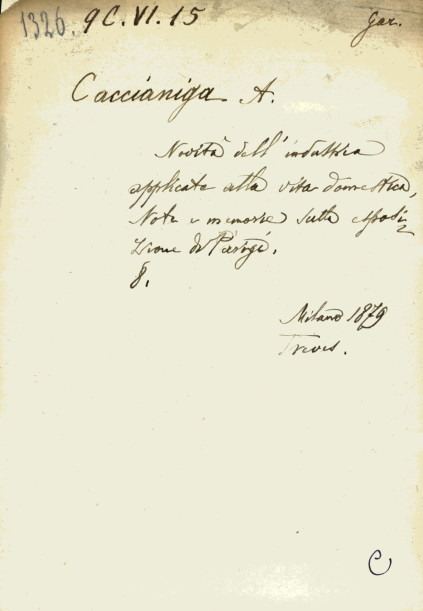 1326. 9 C. VI. 15 Gar.
Caccianiga A.
Novità dell' industria
applicate alla vita domestica,
Note e memorie sulla esposi
zione di Parigi.
8.
Milano 1879
Treves.
C